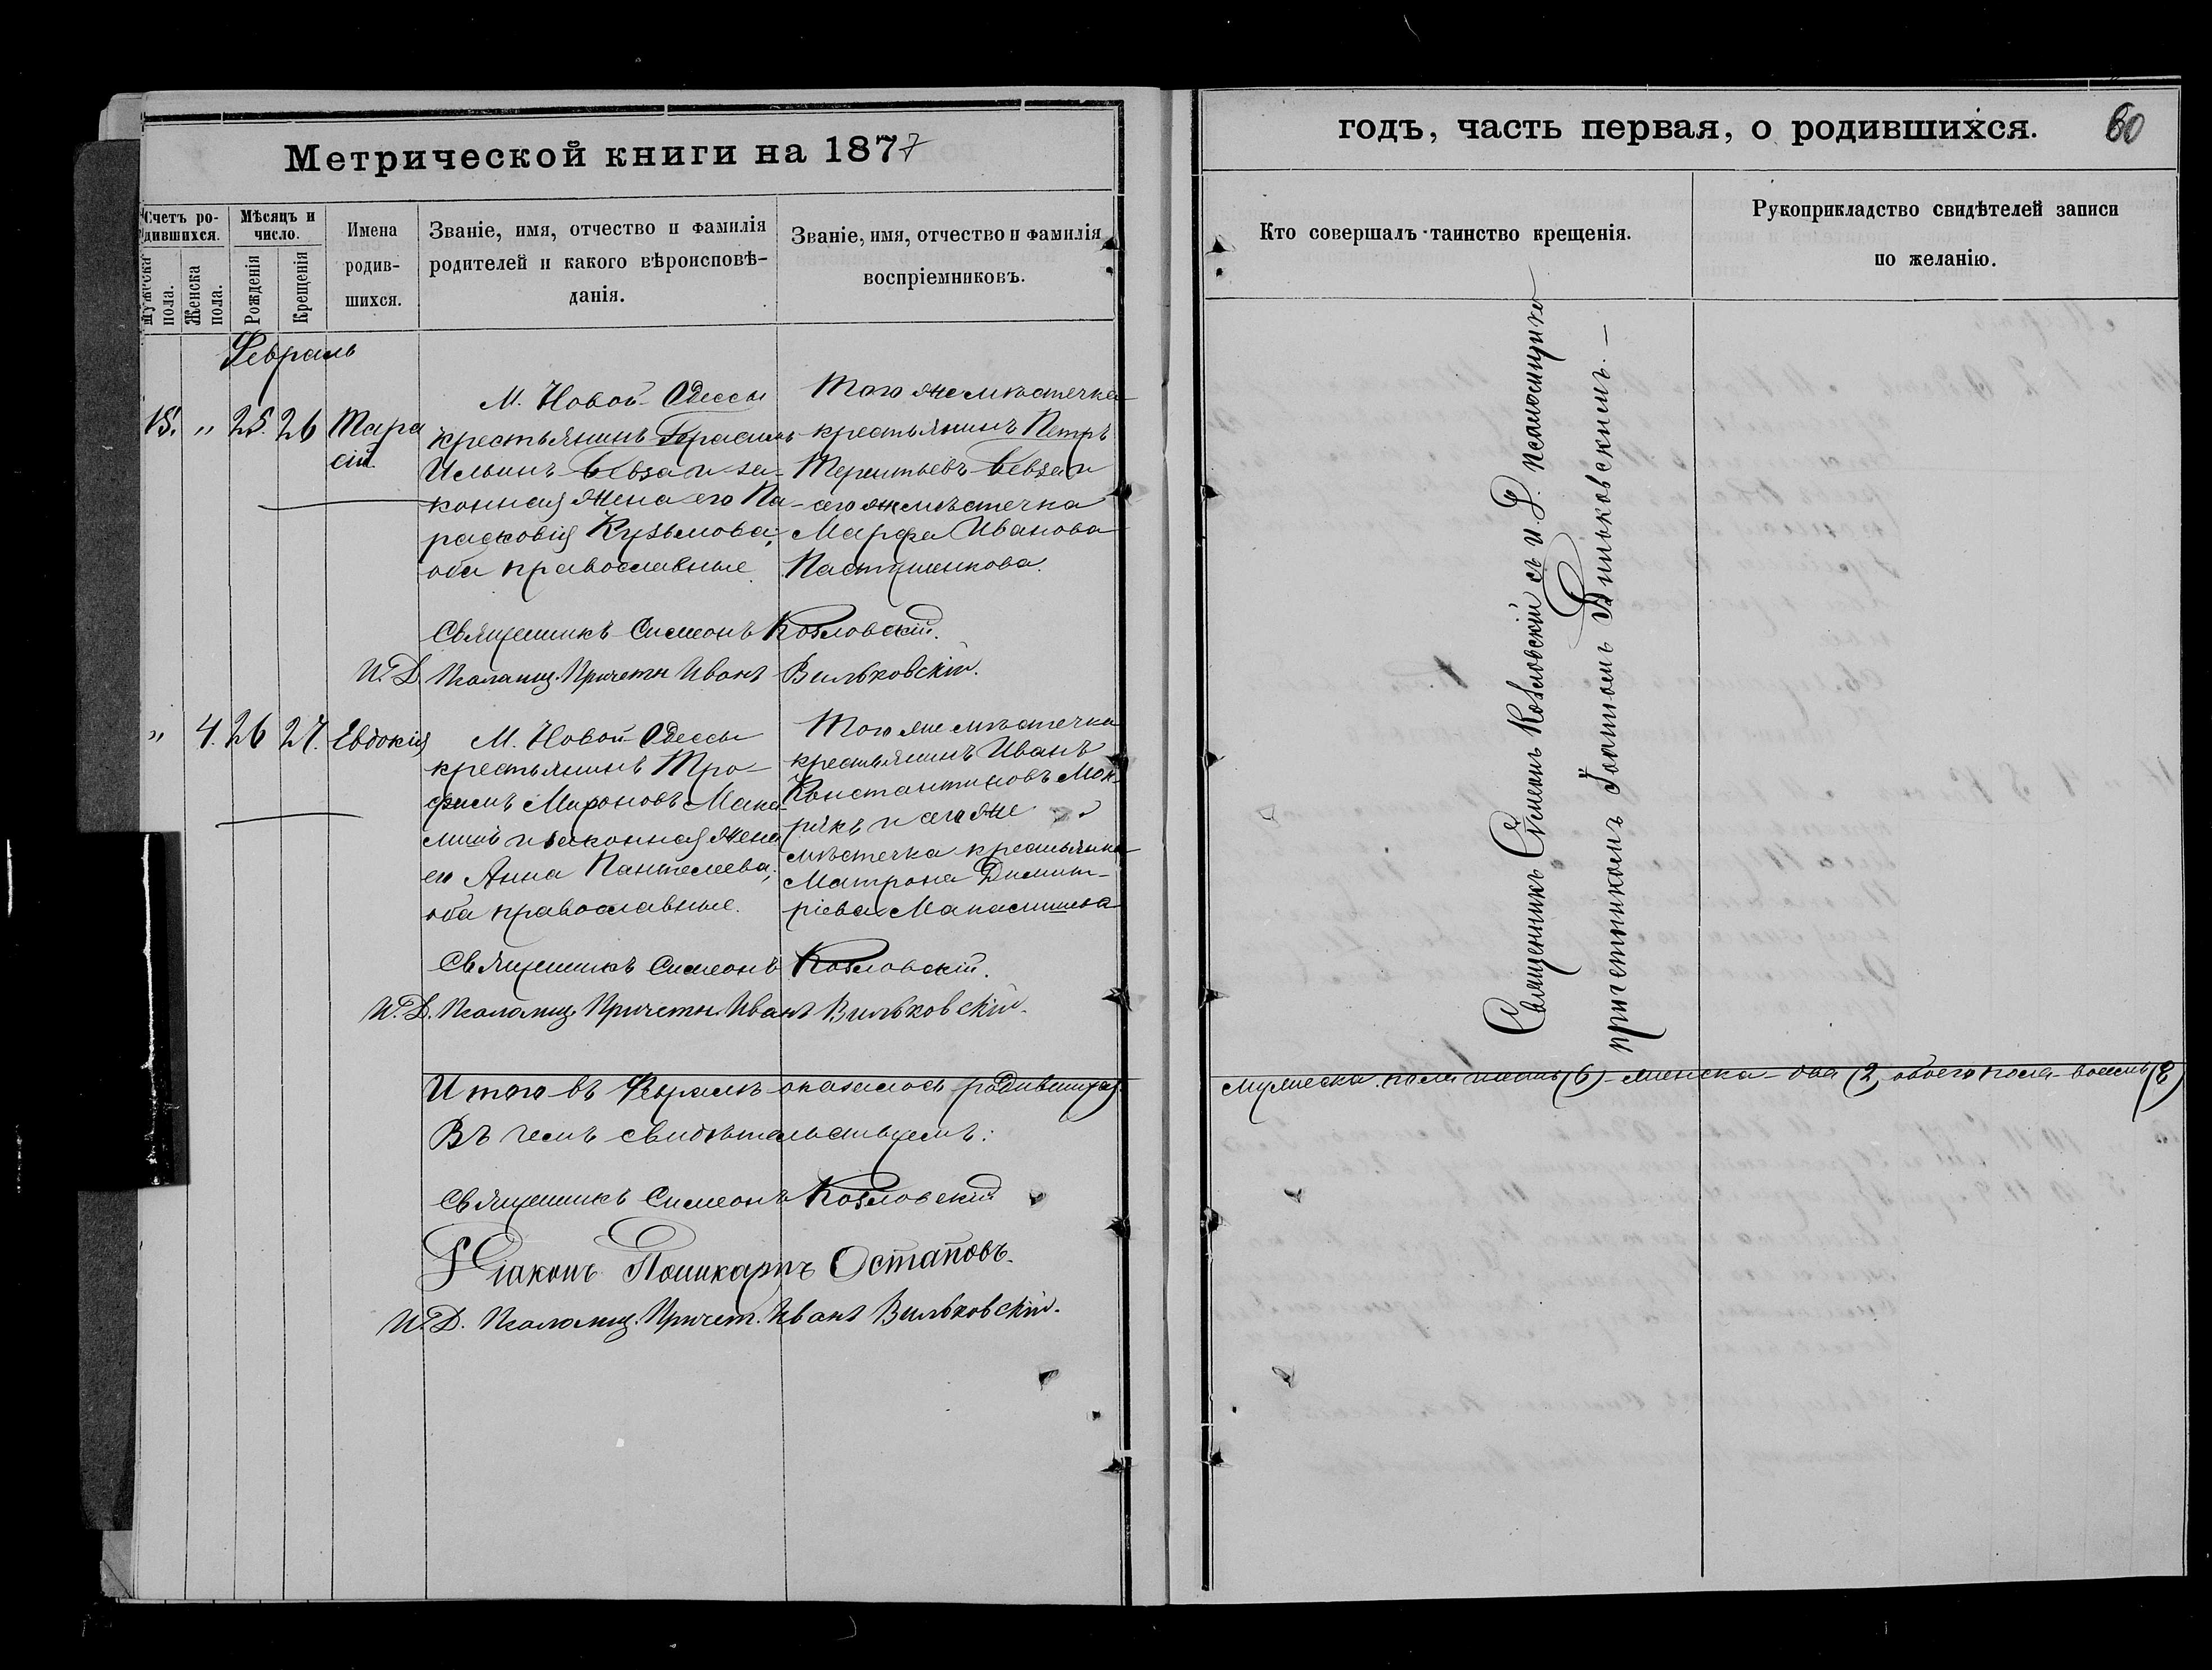 Метрической книги на 1877
годъ, часть первая, о родившихся.
60
Счетъ ро-
дившихся.
Мѣсяцъ и
число.
Имена
родив-
шихся.
Званіе, имя, отчество и фамилія
родителей и какого вѣроисповѣ-
данія.
Званіе, имя, отчество и фамилія
воспріемниковъ.
Мужеска
пола.
Женска
пола.
Рожденія
Крещенія
Кто совершалъ таинство крещенія.
Рукоприкладство свидѣтелей записи
по желанію.
Февраль
15. " 25. 26 Тара
сій.
М. Новой Одессы
крестьянинъ Герасимъ
Ильинъ Бевза и за-
конная жена его Па-
расковія Кузьмова;
оба православные
Того же мѣстечка
крестьянинъ Петръ
Терентьевъ Бевза и
его же мѣстечка
Марфа Иванова
Пастушенкова.
Священникъ Симеонъ Козловскій.
И. Д. Псаломщ. Причетн Иванъ Вильковскій.
" 4. 26 27. Евдокія
М. Новой Одессы
крестьянинъ Тро-
фимъ Мироновъ
и законная жена
его Анна Пантелеева;
оба православные.
Того же мѣстечка
крестьянинъ Иванъ
Константиновъ Мок-
рякъ и того же
мѣстечка крестьянка
Матрона Димит-
ріева
Священникъ Симеонъ Козловскій.
И. Д. Псаломщ. Причетн. Иванъ Вильковскій.
Итого въ Февралѣ оказалось родившихся
мужеска пола шесть (6) женска два (2, обоего пола восемь (8)
Въ чемъ свидѣтельствуемъ:
Священникъ Симеонъ Козловскій
Діаконъ Поликарпъ Остаповъ.
И. Д. Псаломщ. Причет. Иванъ Вильковскій.
Священникъ Симеонъ Козловскій съ и. д. псаломщика
причетникомъ Іоанномъ Вильковскимъ.